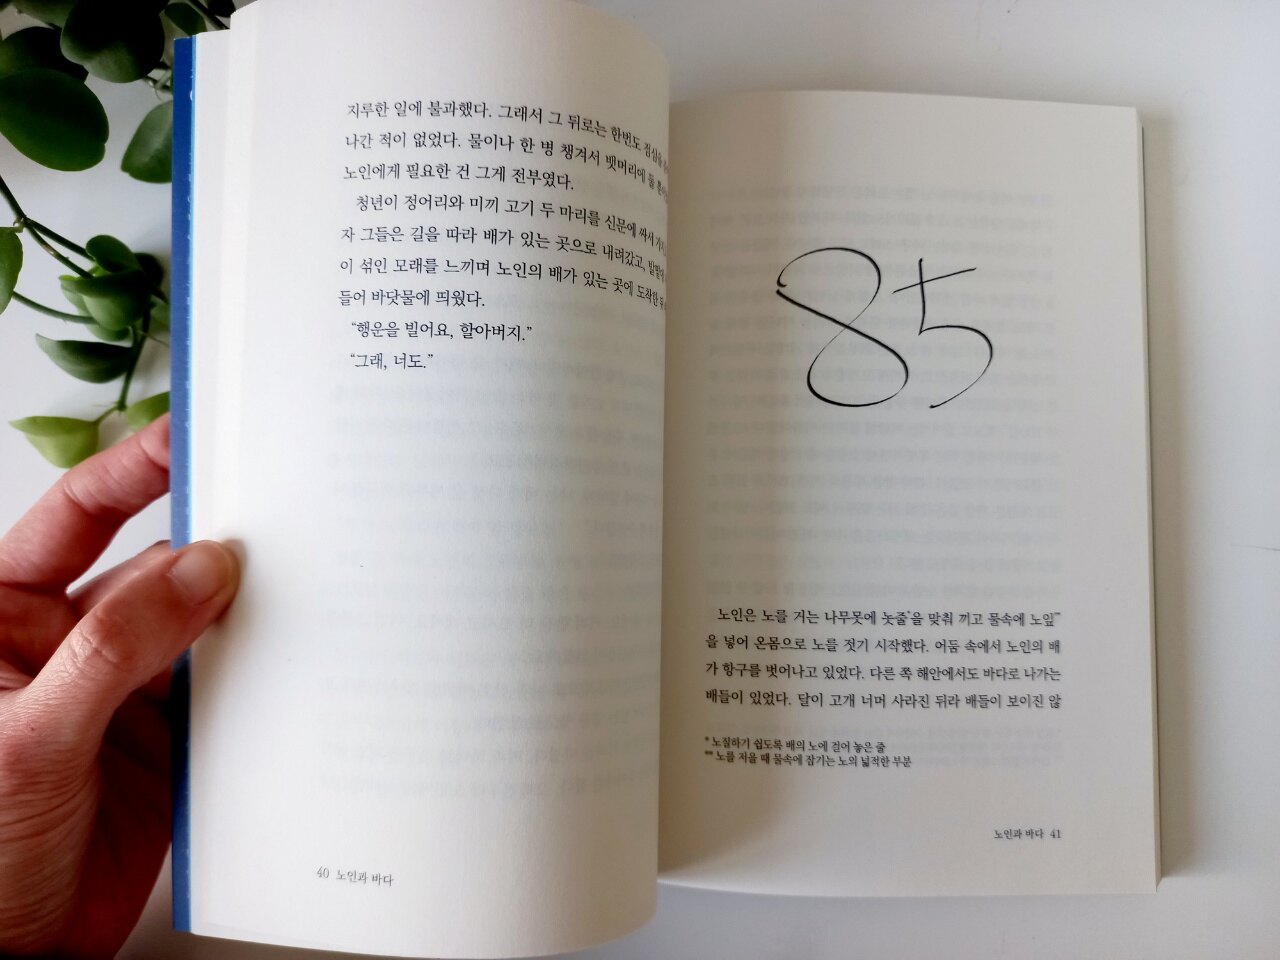 지루한 일에 불과했다. 그래서 그 뒤로는 한번도 점심을
나간 적이 없었다. 물이나 한 병 챙겨서 뱃머리에 둘
노인에게 필요한 건 그게 전부였다.
청년이 정어리와 미끼 고기 두 마리를 신문에 싸서
자 그들은 길을 따라 배가 있는 곳으로 내려갔고,
이 섞인 모래를 느끼며 노인의 배가 있는 곳에 도착한
들어 바닷물에 띄웠다.
“행운을 빌어요, 할아버지.”
“그래, 너도.”
40 노인과 바다
85
노인은 노를 거는 나무못에 놋줄*을 맞춰 끼고 물속에 노잎**
을 넣어 온몸으로 노를 젓기 시작했다. 어둠 속에서 노인의 배
가 항구를 벗어나고 있었다. 다른 쪽 해안에서도 바다로 나가는
배들이 있었다. 달이 고개 너머 사라진 뒤라 배들이 보이진 않
* 노질하기 쉽도록 배의 노에 걸어 놓은 줄
** 노를 저을 때 물속에 잠기는 노의 넓적한 부분
노인과 바다 41